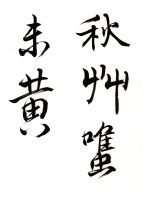 秋艸雖
未黄